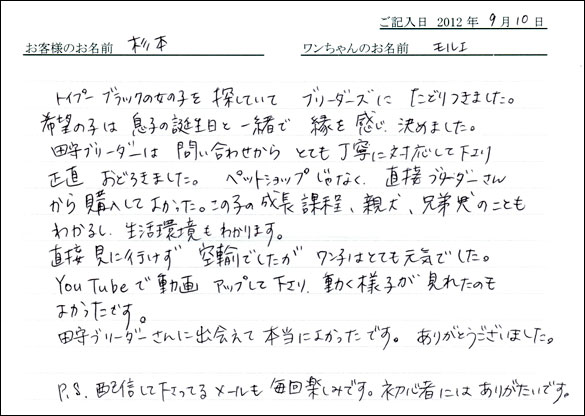 ご記入日 2012年 9月10日
お客様のお名前 杉本 ワンちゃんのお名前 モルエ
トイプー ブラックの女の子を 探していて ブリーダーズに たどりつきました。
希望の子は 息子の誕生日と一緒で 縁を感じ 決めました。
田守ブリーダーは 問い合わせから とても丁寧に対応して下さり
正直 おどろきました。 ペットショップじゃなく、直接ブリーダーさん
から購入してよかった。この子の成長課程、親犬、兄弟犬のことも
わかるし、生活環境もわかります。
直接見に行けず 空輸でしたが ワン子はとても元気でした。
YouTubeで動画 アップして下さり、動く様子が見れたのも
よかったです。
田守ブリーダーさんに出会えて本当によかったです。 ありがとうございました。
P.S. 配信して下さってるメールも 毎回楽しみです。初心者には ありがたいです。